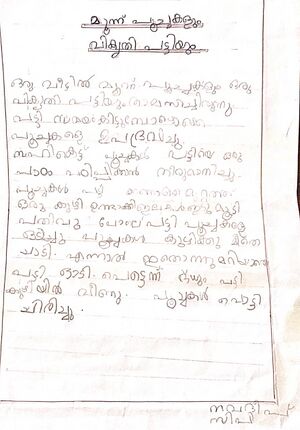 മൂന്ന് പൂച്ചകളും
വികൃതി പട്ടിയും
ഒരു വീട്ടിൽ മൂന്ന് പൂച്ചകളും ഒരു
വികൃതി പട്ടിയും താമസിച്ചിരുന്നു.
പട്ടി സമയംകിട്ടുമ്പോളൊക്കെ
പൂച്ചകളെ ഉപദ്രവിച്ചു.
സഹികെട്ട് പൂച്ചകൾ പട്ടിയെ ഒരു
പാഠം പഠിപ്പിക്കാൻ തീരുമാനിച്ചു.
പൂച്ചകൾ
ഒരു കുഴി ഉണ്ടാക്കി മൂടി
പതിവു പോലെ പട്ടി പൂച്ചകളെ
ഓടിച്ചു പൂച്ചകൾ കുഴിക്കു മീതെ
ചാടി. എന്നാൽ ഇതൊന്നുമറിയാതെ
പട്ടി ഓടി. പെട്ടെന്ന് പട്ടി
കുഴിയിൽ വീണു. പൂച്ചകൾ പൊട്ടി
ചിരിച്ചു.
നവദീപ്
സിപി